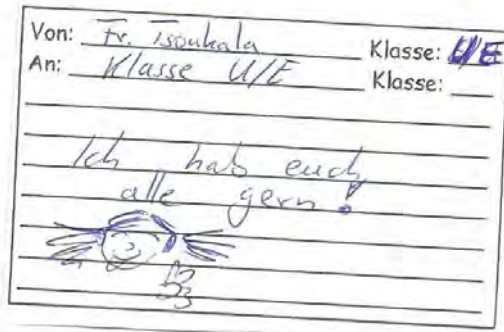 Von: Fr. Tsoukala Klasse: U/E
An: Klasse U/E Klasse:
Ich hab euch
alle gern!